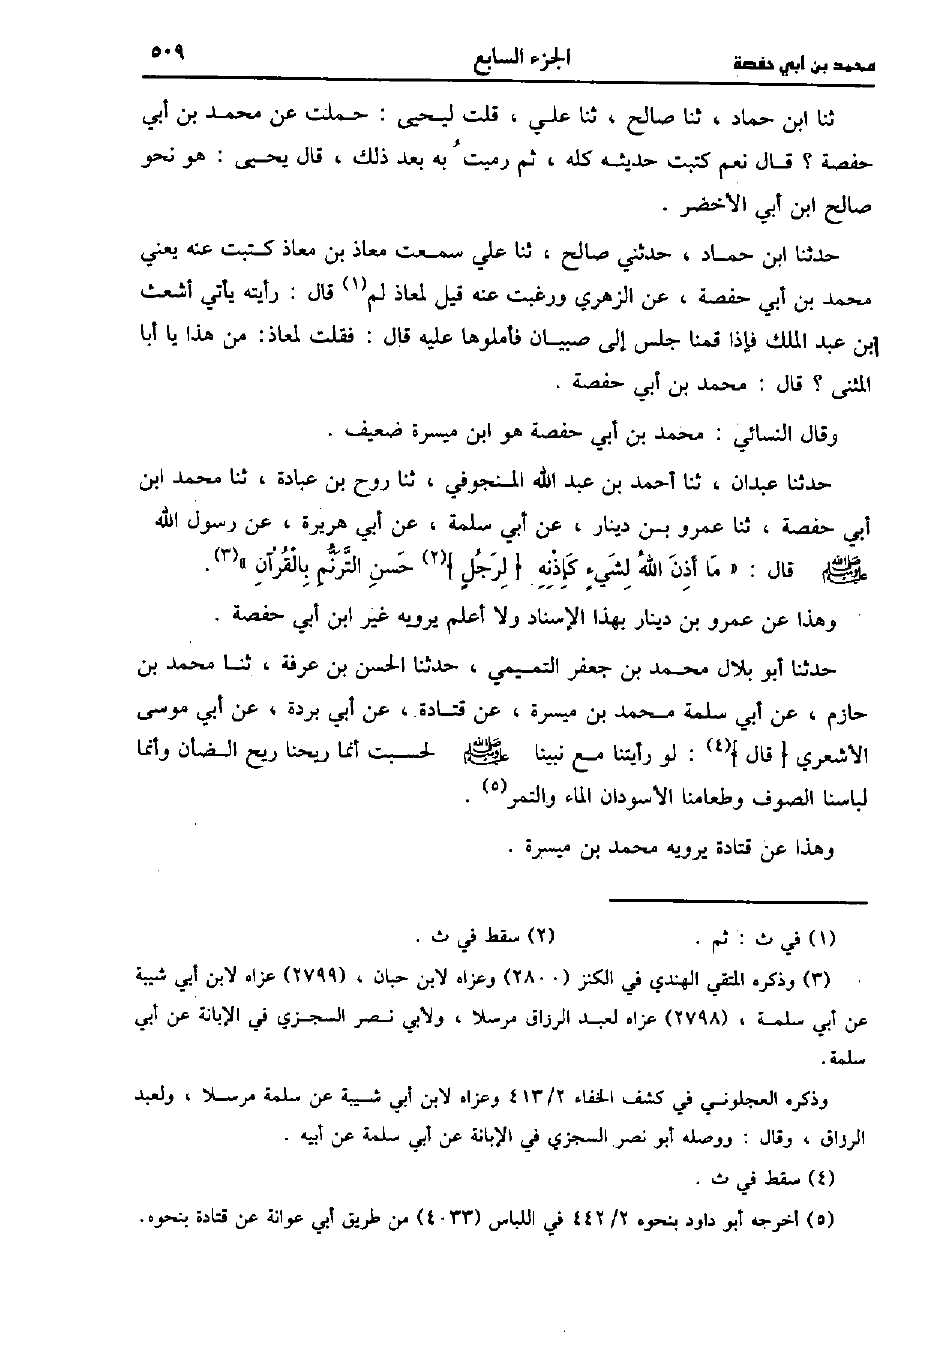 محمد بن ابي حفصة الجزء السابع ٥٠٩
ثنا ابن حماد ، ثنا صالح ، ثنا علي ، قلت ليحيى : حملت عن محمد بن أبي
حفصة ؟ قال نعم كتبت حديثه كله ، ثم رميتُ به بعد ذلك ، قال يحيى : هو نحو
صالح ابن أبي الأخضر .
حدثنا ابن حماد ، حدثني صالح ، ثنا علي سمعت معاذ بن معاذ كتبت عنه يعني
محمد بن أبي حفصة ، عن الزهري ورغبت عنه قيل لمعاذ لم(١) قال : رأيته يأتي أشعث
ابن عبد الملك فإذا قمنا جلس إلى صبيان فأملوها عليه قال : فقلت لمعاذ: من هذا يا أبا
المثنى ؟ قال : محمد بن أبي حفصة .
وقال النسائي : محمد بن أبي حفصة هو ابن ميسرة ضعيف .
حدثنا عبدان ، ثنا أحمد بن عبد الله المنجوفي ، ثنا روح بن عبادة ، ثنا محمد ابن
أبي حفصة ، ثنا عمرو بن دينار ، عن أبي سلمة ، عن أبي هريرة ، عن رسول الله
ﷺ قال : « مَا أَذِنَ اللهُ لِشَيءٍ كَإِذْنِهِ { لِرَجُلٍ }(٢) حَسَنِ التَّرَنُّمِ بِالْقُرْآنِ »(٣).
وهذا عن عمرو بن دينار بهذا الإسناد ولا أعلم يرويه غير ابن أبي حفصة .
حدثنا أبو بلال محمد بن جعفر التميمي ، حدثنا الحسن بن عرفة ، ثنا محمد بن
حازم ، عن أبي سلمة محمد بن ميسرة ، عن قتادة ، عن أبي بردة ، عن أبي موسى
الأشعري { قال }(٤) : لو رأيتنا مع نبينا ﷺ لحسبت أنما ريحنا ريح الضأن وأنما
لباسنا الصوف وطعامنا الأسودان الماء والتمر(٥) .
وهذا عن قتادة يرويه محمد بن ميسرة .
(١) في ث : ثم . (٢) سقط في ث .
(٣) وذكره المتقي الهندي في الكنز (٢٨٠٠) وعزاه لابن حبان ، (٢٧٩٩) عزاه لابن أبي شيبة
عن أبي سلمة ، (٢٧٩٨) عزاه لعبد الرزاق مرسلا ، ولأبي نصر السجزي في الإبانة عن أبي
سلمة .
وذكره العجلوني في كشف الخفاء ٤١٣/٢ وعزاه لابن أبي شيبة عن سلمة مرسلا ، ولعبد
الرزاق ، وقال : ووصله أبو نصر السجزي في الإبانة عن أبي سلمة عن أبيه .
(٤) سقط في ث .
(٥) أخرجه أبو داود بنحوه ٤٤٢/٢ في اللباس (٤٠٣٣) من طريق أبي عوانة عن قتادة بنحوه.